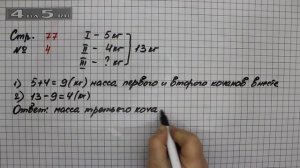 4на5.ru
Стр. 77
№ 4
I - 5 кг
II - 4 кг
III - ? кг
13 кг
1) 5+4=9(кг) масса первого и второго кочанов вместе
2) 13-9=4(кг)
Ответ: масса третьего коча